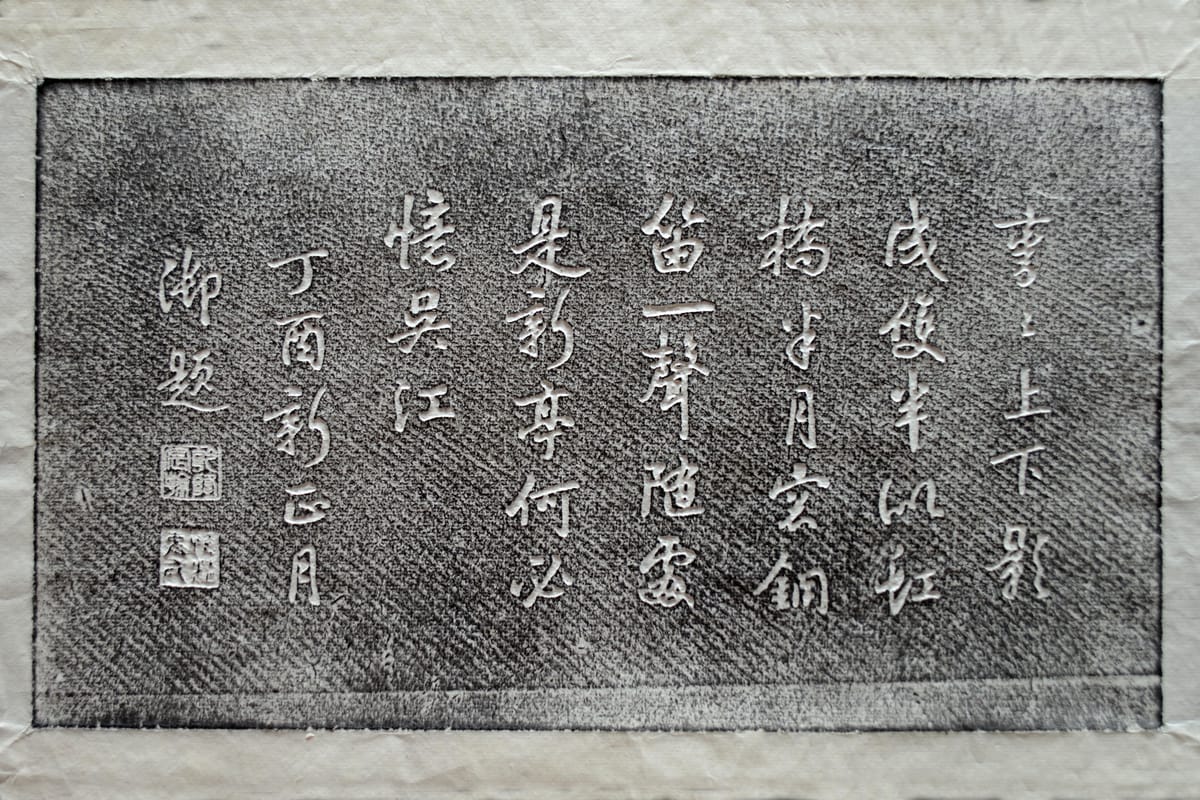 〻上下影
成雙半似虹
橋半月窓銅
笛一聲隨處
是新亭何必
憶吳江
丁酉新正月
御題
乾隆宸翰